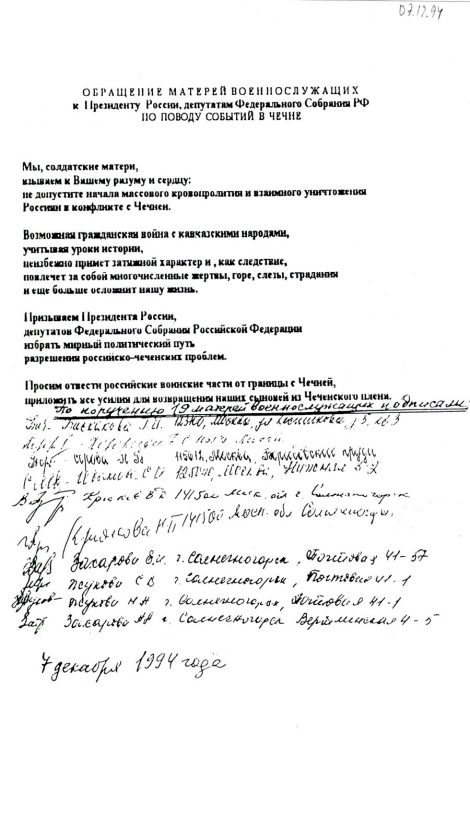 07.12.94
ОБРАЩЕНИЕ МАТЕРЕЙ ВОЕННОСЛУЖАЩИХ
к Президенту России, депутатам Федерального Собрания РФ
ПО ПОВОДУ СОБЫТИЙ В ЧЕЧНЕ
Мы, солдатские матери,
взываем к Вашему разуму и сердцу:
не допустите начала массового кровопролития и взаимного уничтожения
Россиян в конфликте с Чечней.
Возможная гражданская война с кавказскими народами,
учитывая уроки истории,
неизбежно примет затяжной характер и , как следствие,
повлечет за собой многочисленные жертвы, горе, слезы, страдания
и еще больше осложнит нашу жизнь.
Призываем Президента России,
депутатов Федерального Собрания Российской Федерации
избрать мирный политический путь
разрешения российско-чеченских проблем.
Просим отвести российские воинские части от границы с Чечней,
приложить все усилия для возвращения наших сыновей из Чеченского плена.
По поручению 19 матерей военнослужащих подписали:
Москва
Москва
115612, Москва, Борисовские пруды
141500 г. Солнечногорск
Крюкова НП 141500 Моск. обл Солнечногорск
Захарова В.И. г. Солнечногорск, Почтовая 41-57
Жукова С В г. Солнечногорск, Почтовая 41-1
Жукова Н А г. Солнечногорск, Почтовая 41-1
Захарова г. Солнечногорск Вертлинская 4-5
7 декабря 1994 года